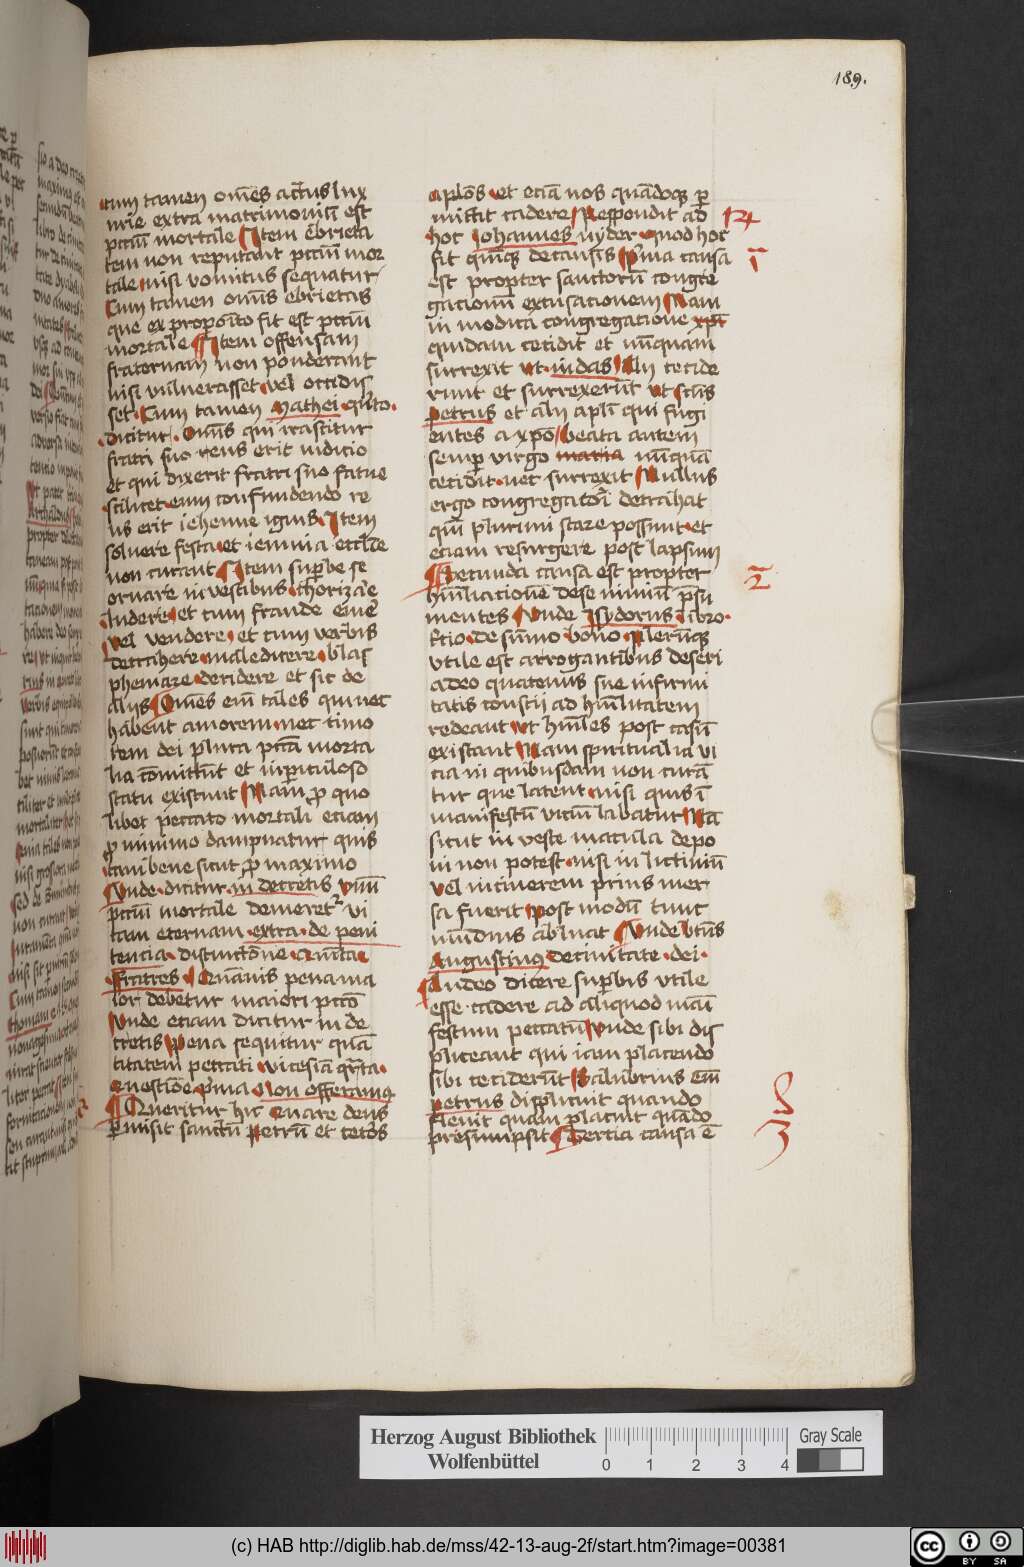 189.
cum tamen om̄es actus lux
urie extra matrimoniū est
pctm̄ mortale Item ebrieta
tem non reputant pctm̄ mor
tale nisi vomitus sequatur
Cum tamen om̄is ebrietas
que ex proposito fit est pctm̄
mortale Item offensam
fraternam non ponderant
nisi vulnerasset vel occidis
set Cum tamen Mathei quīto
dicitur Om̄is qui irascitur
fratri suo reus erit iudicio
et qui dixerit fratri suo fatue
scilicet eum confundendo re
us erit iehenne ignis Item
soluere festa et ieiunia eccl̄ie
non curant Item sup̄be se
ornare in vestibus chorizāe
ludere et cum fraude eme᷑
vel vendere et cum verbis
detrahere maledicere blas
phemare decidere et sic de
aliis Om̄es em̄ tales qui nec
habent amorem nec timo
rem dei plura pctā morta
lia com̄ittūt et in periculoso
statu existunt Nam p̱ quo
libet peccato mortali etiam
p̱ minimo dampnatur quis
tam bene sicut p̱ maximo
Unde dicitur in decretis
pctm̄ mortale demeretᷣ vi
tam eternam extra de peni
tencia distinctōne quinta
Fratres Quāuis pena ma
ior debetur maiori pctō
Unde etiam dicitur in de
cretis Pena sequitur quā
titatem peccati vicesiā qrta
questiōe p̄ma Non offeramꝰ
Queritur hic Quare deus
p̱misit sanctū Petrū et ceteros
aplōs et eciā nos quādoqꝫ p̱
mittit cadere Respondit ad
hoc Iohannes nyder quod hoc
fit quīqꝫ de causis P̄ma causa
est propter sanctorū congre
gationū excusationem Nam
in modica congregatione xpī
quidam cecidit et nūquam
surrexit ut iudas Alii cecide
runt et surrexerūt ut sctūs
Petrus et alii apl̄i qui fugi
entes a xp̄o Beata autem
semp̱ virgo maria nūquā
cecidit nec surrexit Nullus
ergo congregatōi detrahat
qm̄ plurimi stare possunt et
etiam resurgere post lapsum
Secunda causa est propter
hūiliationē de se nimiū p̄su
mentes Unde Isydorus libro
tercio de sūmo bono Plerūqꝫ
vtile est arrogantibus deseri
a deo quatenus sue infirmi
tatis conscii ad hūilitatem
redeant ut hūiles post casū
existant Nam spiritualia vi
cia in quibusdam non curā
tur que latent nisi quis ī
manifestū vicm̄ labatur Nā
sicut in veste macula depo
ni non potest nisi in lictiniū
vel in cinerem prius mer
sa fuerit post modū tunc
mūdius abluat Unde btūs
Augustinus de ciuitate dei
Audeo dicere superbis vtile
esse cadere ad aliquod mai
festum peccatū Unde sibi dis
pliceant qui iam placendo
sibi ceciderūt Salubrius em̄
Petrus displicuit quando
fleuit quam placuit quādo
presumpsit Tercia causa ē
1
2
3
Herzog August Bibliothek
Wolfenbüttel
0 1 2 3 4
Gray Scale
(c) HAB http://diglib.hab.de/mss/42-13-aug-2f/start.htm?image=00381
cc BY SA